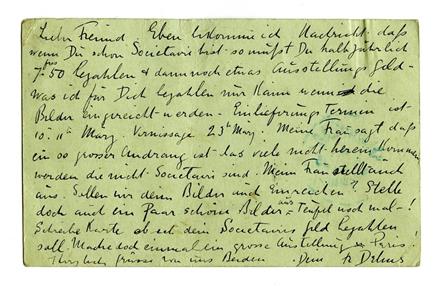 Lieber Freund. Eben bekomme ich Nachricht, daß
wenn Du schon Societaire bist - so mußt Du halbjährlich
7 frs 50 bezahlen & dann noch etwas Ausstellungsgeld -
was ich für Dich bezahlen kann wenn die
Bilder eingereicht werden - Einlieferungs Termin ist
10. 11 März. Vernissage 23 März. Meine Frau sagt daß
ein so grosser Andrang ist - das viele nicht herein kommen
werden die nicht Societairs sind. Meine Frau stellt auch
aus. Sollen wir denn Bilder und Einreichen? Stelle
doch auch ein Paar schöne Bilder aus = Teufel noch mal -!
Schreibe Karte ob ich dein Societairs geld bezahlen
soll. Mache doch einmal ein grosse Ausstellung in Paris!
Herzlich grüsse von uns Beiden. Dein Fr Delius